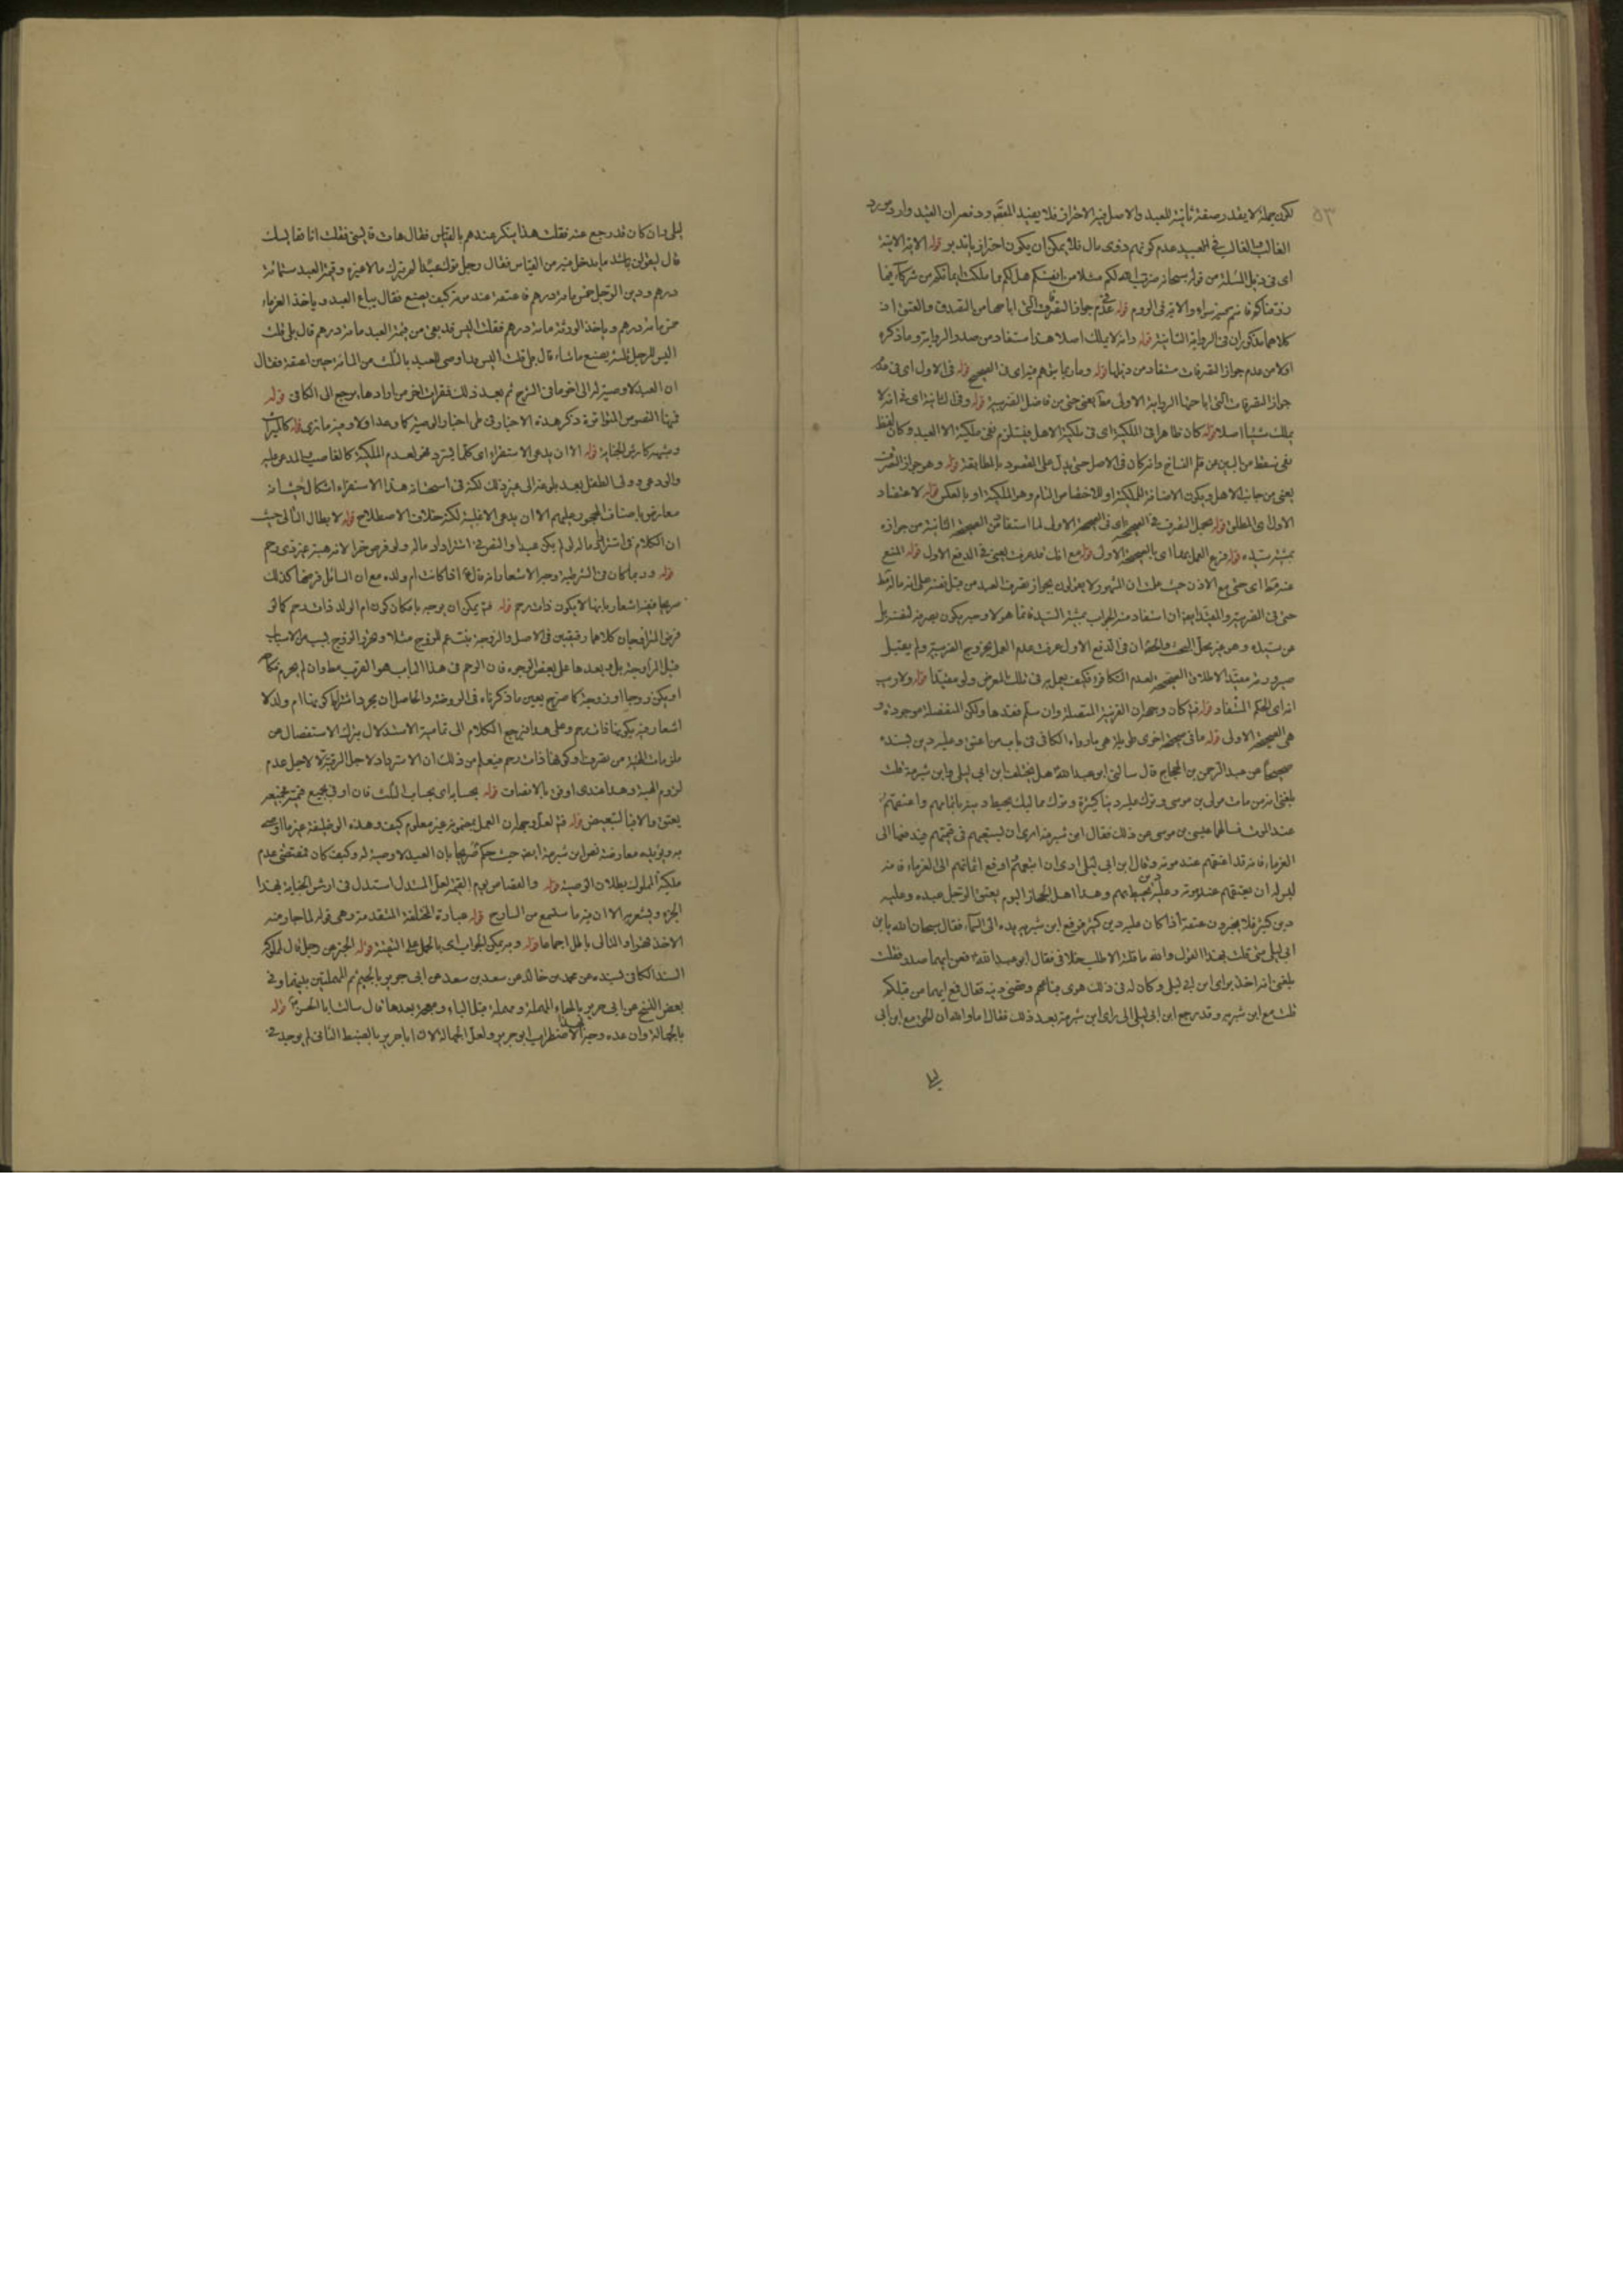 ٥٣
لكون جملة لا يقدر صفة ثانية للعبد والاصل فيه الاحتراز فلا يفيد المفهوم ودفعه ان القيد وارد مورد
الغالب والغالب في العبيد عدم كونهم ذوى مال فلا يمكن ان يكون احترازيا تدبر قوله الآية الآتية
اى فى ذيل المسئلة من قوله سبحانه ضرب الله لكم مثلا من انفسكم هل لكم مما ملكت ايمانكم من شركاء فيما
رزقناكم فانتم فيه سواء والآية فى الروم قوله عدم جواز التصرفات التى اباحها من التصدق والعتق اذ
كلاهما مذكوران فى الرواية الثانية قوله وانه لا يملك اصلا هذا مستفاد من صدر الرواية وما ذكره
اولا من عدم جواز التصرفات مستفاد من ذيلها قوله وما ربما يتوهم فيه اى فى الصحيح قوله فى الاول اى فى عدم
جواز التصرفات التى اباحها الرواية الاولى مطلقا يعنى حتى من فاضل الضريبة قوله وفى الثانية اى فى انه لا
يملك شيئا اصلا قوله كان ظاهرا فى الملكية اى فى ملكية الاهل فيستلزم نفى ملكية الا العبد وكان لفظ
نفى سقط من البين من قلم الناسخ وانه كان فى الاصل حتى يدل على المقصود بالمطابقة قوله وهو جواز التصرف
يعنى من جانب الاهل ويكون الاضافة للملكية او للاختصاص التام وهو الملكية او بالعكس قوله لاعتضاد
الاول اى المطلق قوله محمل التصرف فى الصحيحة اى فى الصحيحة الاولى لما استفاد من الصحيحة الثانية من جوازه
بمشية سيده قوله فرع العمل بها اى بالصحيحة الاولى قوله مع انك قد عرفت يعنى فى الدفع الاول قوله المنع
عنه قط اى حتى مع الاذن حيث علمت ان المشهور لا يقولون بجواز تصرف العبد من قبل نفسه على انه ماله قط
حتى فى الضريبة والمقيد ايضا ان استفاد منه الجواب بمشية السيد فانما هو لا وجه يكون تصرفه لنفسه بل
عن سيده وهو غير محل البحث والحق ان فى الدفع الاول عرفت عدم العمل بخروج الضريبة ولم يعقل
صيرورته مقيد الاطلاق الصحيحة لعدم التكافؤ فكيف يعمل به فى ذلك المعرض ولو مقيدا قوله ولا ريب
انه اى الحكم المستفاد قوله فيه كان وجهه ان القرينة المتصلة وان سلم فقدها ولكن المنفصلة موجودة و
هى الصحيحة الاولى قوله ما فى صحيحة اخرى طويلة هى ما رواه الكافى فى باب من اعتق وعليه دين بسنده
صحيحا عن عبد الرحمن بن الحجاج قال سالنى ابو عبد الله هل يختلف ابن ابى ليلى وابن شبرمة فقلت
بلغنى انه مات مولى بن موسى وترك عليه دينا كثيرا وترك مماليك يحيط دينه باثمانهم واعتقهم
عند الموت فسألهما عيسى بن موسى عن ذلك فقال ابن شبرمة ارى ان يستسعيهم فى قيمتهم فيدفعها الى
الغرماء فانه قد اعتقهم عند موته وقال ابن ابى ليلى ارى ان ابيعهم وادفع اثمانهم الى الغرماء فانه
ليس له ان يعتقهم عند موته وعليه دين يحيط بهم وهذا اهل الحجاز اليوم يعتق الرجل عبده وعليه
دين كثير فلا يجيزون عتقه اذا كان عليه دين كثير فرفع ابن شبرمة يده الى السماء فقال سبحان الله يا بن
ابى ليلى متى قلت بهذا القول والله ما قلته الا طلب خلافى فقال ابو عبد الله فعن ايهما صدر فقلت
بلغنى انه اخذ براى ابن ابى ليلى وكان له فى ذلك هوى فباعهم وقضى دينه فقال فمع ايهما من قبلكم
قلت مع ابن شبرمة وقد رجع ابن ابى ليلى الى راى ابن شبرمة بعد ذلك فقال اما والله ان الحق مع ابن ابى
ليلى
ليلى وان كان قد رجع عنه فقلت هذا ينكر عندهم بالقياس فقال هات قايسنى فقلت انا اقايسك
قال لتقولن باشد ما يدخل فيه من القياس فقال رجل ترك عبدا لم يترك مالا غيره وقيمة العبد ستمائة
درهم ودين الرجل خمسمائة درهم فاعتقه عند موته كيف يصنع فقال يباع العبد وياخذ الغرماء
خمسمائة درهم وياخذ الورثة مائة درهم فقلت اليس قد بقى من قيمة العبد مائة درهم قال بلى قلت
اليس للرجل ثلثه يصنع ما شاء قال بلى قلت اليس قد اوصى للعبد بالثلث من المائة حين اعتقه فقال
ان العبد لا وصية له الى آخر ما فى الشرح ثم بعد ذلك فقرات اخر من ارادها يرجع الى الكافى قوله
فيها النصوص المتواترة ذكر هذه الاخبار فى طى اخبار الوصية كما وعد اولا وميزها ترى قوله كالميراث
وشبهه كارش الجناية قوله الا ان يدعى الاستقراء اى كلما يسترد فهو لعدم الملكية كالغاصب والمدعى عليه
والودعى وولى الطفل بعد بلوغه الى غير ذلك لكنه فى استحسانه هذا الاستقراء اشكال حيث انه
معارض باصناف المحجور عليهم الا ان يدعى الاغلبية لكنه خلاف الاصطلاح قوله لابطال الثانى حيث
ان الكلام فى استرداد ماله لو لم يكن عبدا والنص فى استرداد ماله ولو فرض حرا لانه هبة غير ذى رحم
قوله وربما كان فى الشرطية وجه الاشعار انه قال اذا كانت ام ولده مع ان السائل فرضها كذلك
صريحا ففيه اشعار بانها لا يكون ذات رحم قوله فيه يمكن ان يوجه بامكان كون ام الولد ذات رحم كما لو
فرض المتزاوجان كلاهما رقيقين فى الاصل والزوجة بنت عم للزوج مثلا
قبل المزاوجة بل وبعدها على بعض الوجوه فان الرحم فى هذا الباب هو القريب مطلقا وان لم يحرم نكاحه
او يكن زوجا او زوجة كما صرح بعين ما ذكرناه فى الروضة والحاصل ان مجرد اشتراكه كونها ام ولد لا
اشعار فيه بكونها ذات رحم وعلى هذا فيرجع الكلام الى تمامية الاستدلال بترك الاستفصال عن
ملزومات الهبة من تصرفها وكونها ذات رحم فيعلم من ذلك ان الاسترداد لاجل الرقية لا لاجل عدم
لزوم الهبة وهذا عندى اوفق بالانصاف قوله بحسابه اى بحساب الثلث فان اوفى بجميع قيمته فجميعه
يعتق والا فبالتبعيض قوله فيه لعل وجهه ان العمل بمضمونه غير معلوم كيف وهذه الوظيفة غير ما اوصى
به ويؤيده معارضة نص ابن شبرمة ايضا حيث حكم صريحا بان العبد لا وصية له وكيف كان فمقتضى عدم
ملكية المملوك بطلان الوصية قوله والقصاص يوم القيمة لعل المستدل استدل فى ارش الجناية بهذا
الجزء ويشعر به الا ان فيه ما ستسمع من الشارح قوله عبارة المختلفة المتقدمة وهى قوله لما جاز منه
الاخذ قهرا والتالى باطل اجماعا قوله وبه يمكن الجواب اى بالحمل على التقية قوله الخبر عن رجل قال لمملوكه
السند الكافى بسنده عن محمد بن خالد عن سعد بن سعد عن ابى جرير بالجيم ثم المهملتين بينهما وفى
بعض النسخ عن ابى حريز بالحاء المهملة ومهملة قبل الياء ومعجمة بعدها قال سالت ابا الحسن قوله
بالجهالة وان عده وجه الاضطراب ابو جرير ولعل الجهالة لان ابا حريز بالضبط الثانى لم يوجد فى